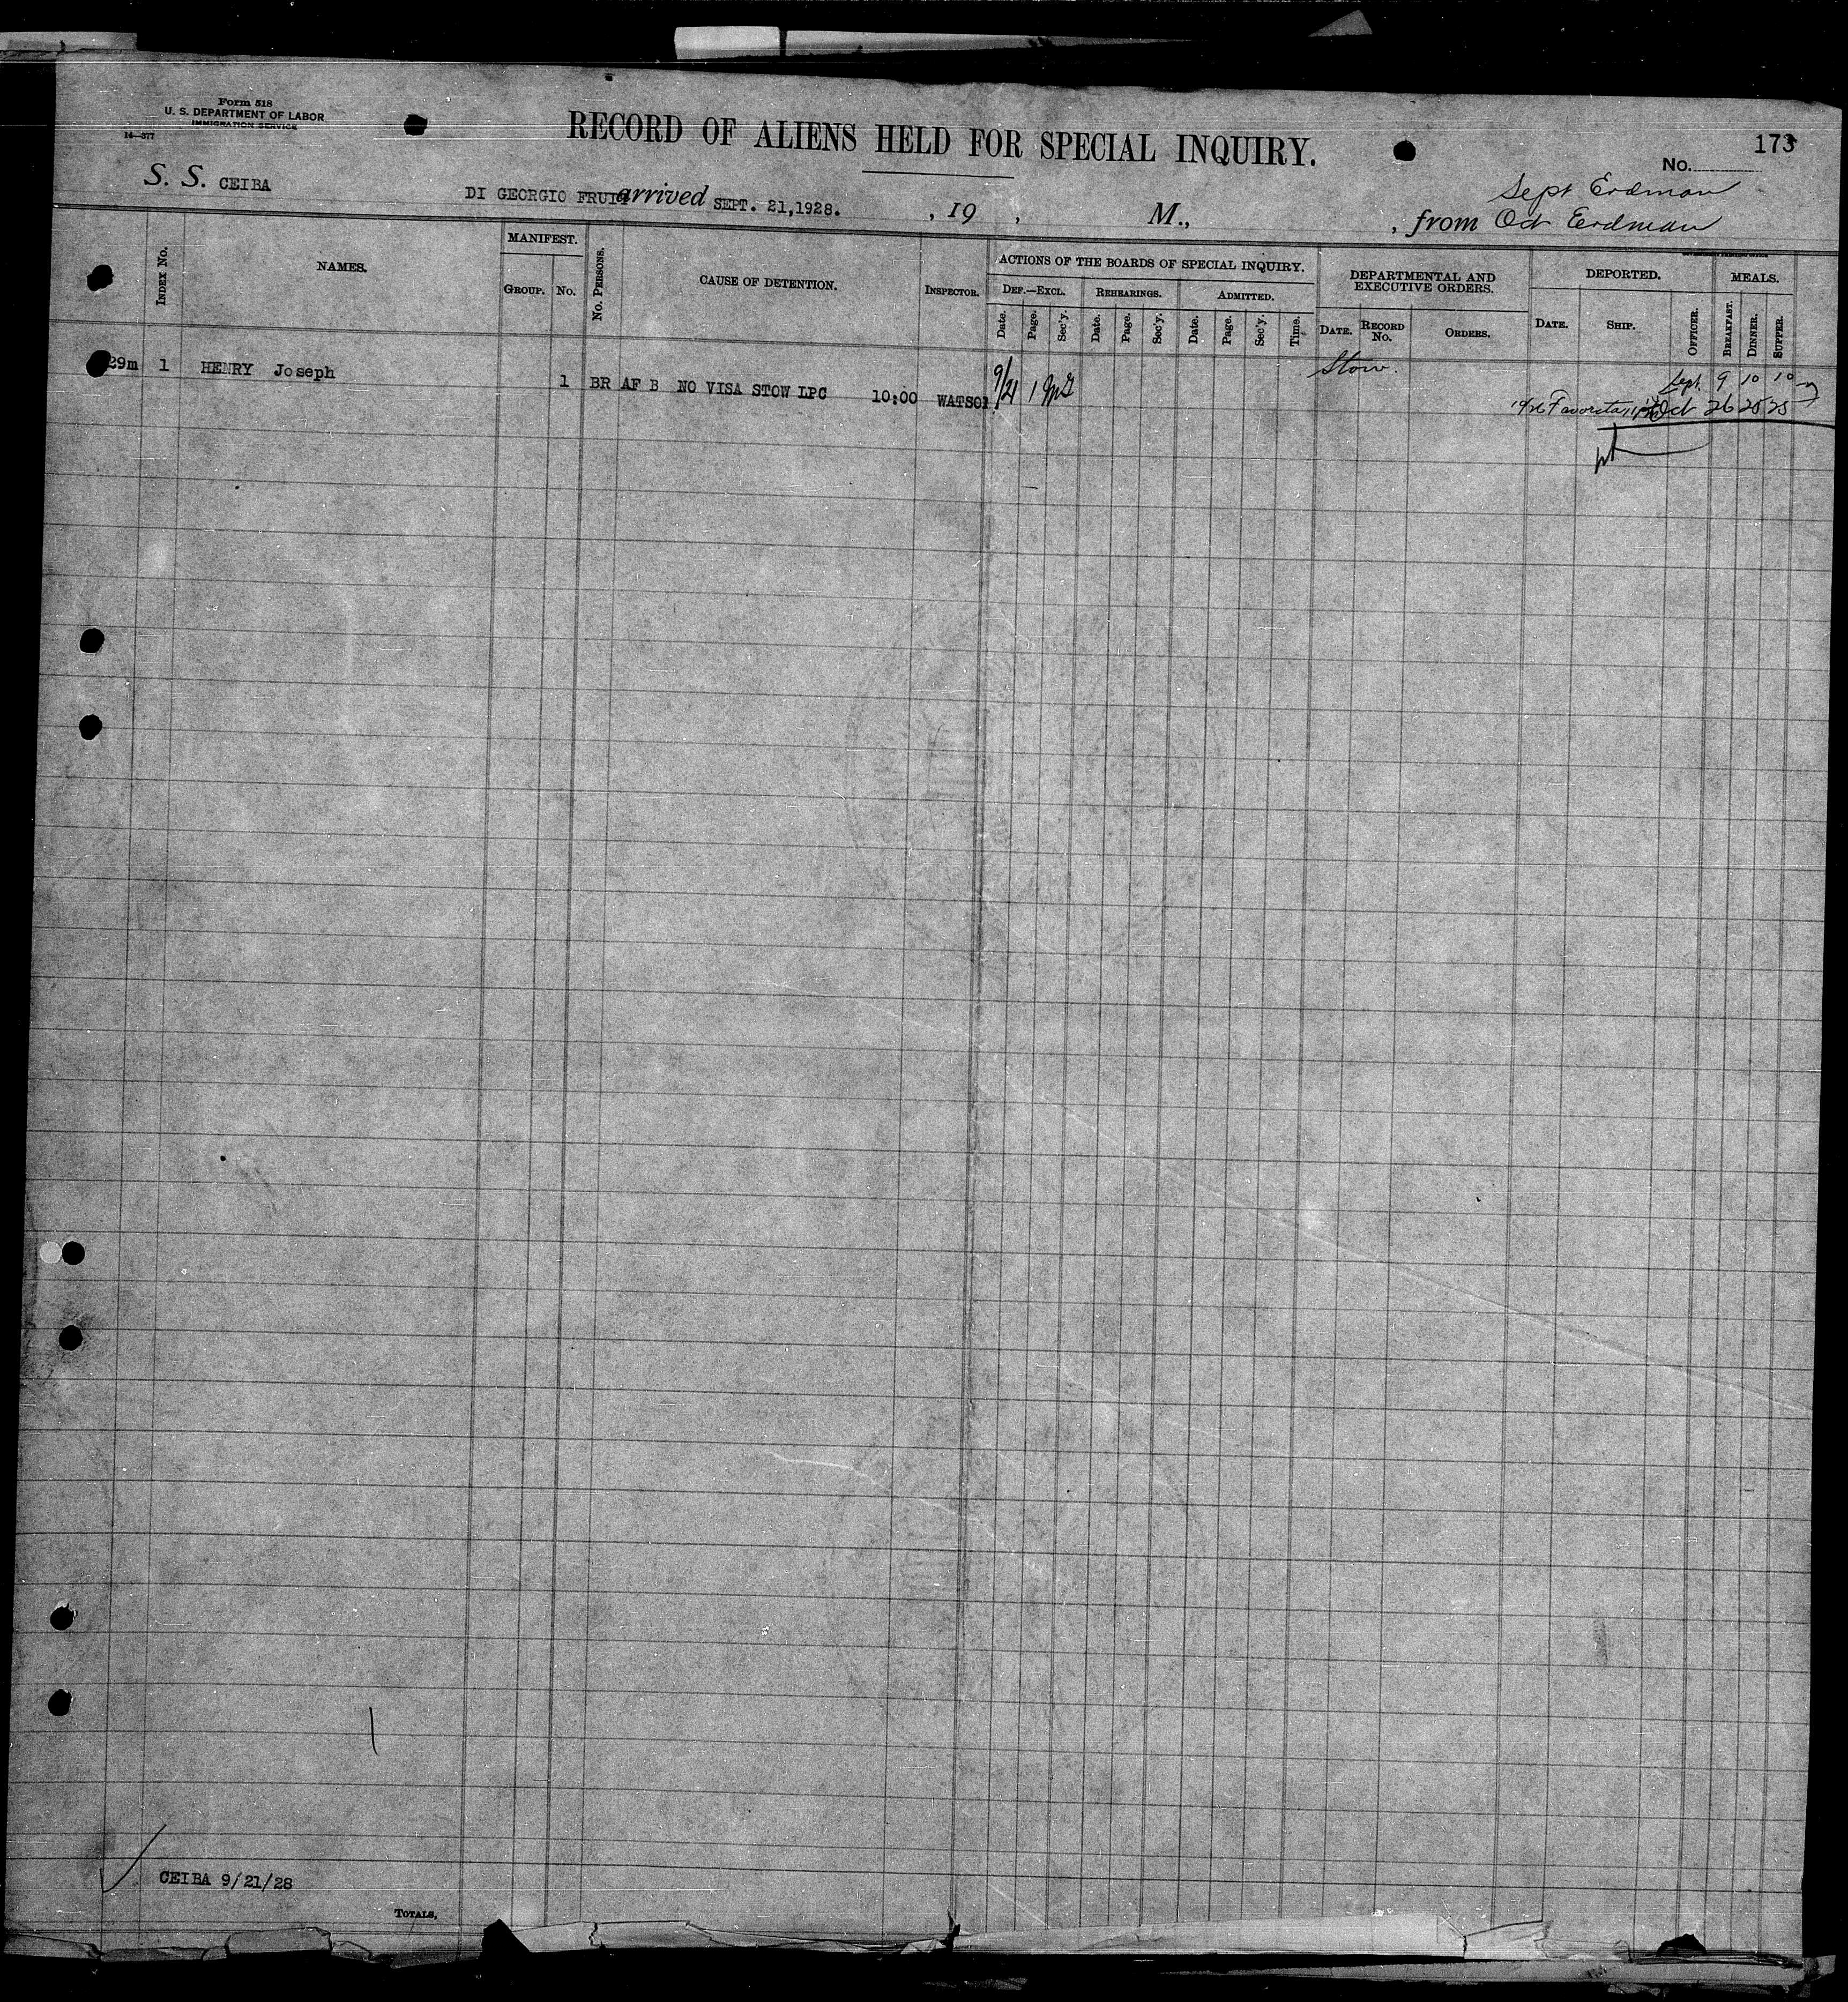 Form 518
U. S. DEPARTMENT OF LABOR
IMMIGRATION SERVICE
14—377
RECORD OF ALIENS HELD FOR SPECIAL INQUIRY.
No. 173
S. S. CEIBA DI GEORGIO FRUIT arrived SEPT. 21,1928. , 19 , M., , from
Sept Erdman
Oct Erdman
INDEX NO.
NAMES.
MANIFEST.
GROUP. NO.
NO. PERSONS.
CAUSE OF DETENTION.
INSPECTOR.
ACTIONS OF THE BOARDS OF SPECIAL INQUIRY.
DEF.—EXCL. REHEARINGS. ADMITTED.
Date. Page. Sec'y. Date. Page. Sec'y. Date. Page. Sec'y. Time.
DEPARTMENTAL AND
EXECUTIVE ORDERS.
DATE. RECORD NO. ORDERS.
DEPORTED.
DATE. SHIP. OFFICER.
MEALS.
BREAKFAST. DINNER. SUPPER.
29m 1 HENRY Joseph 1 BR AF B NO VISA STOW LPC 10:00 WATSON 9/21 1 Stow.
Sept. 9 10 10
Favorita Oct 26 25 25
CEIBA 9/21/28
TOTALS,